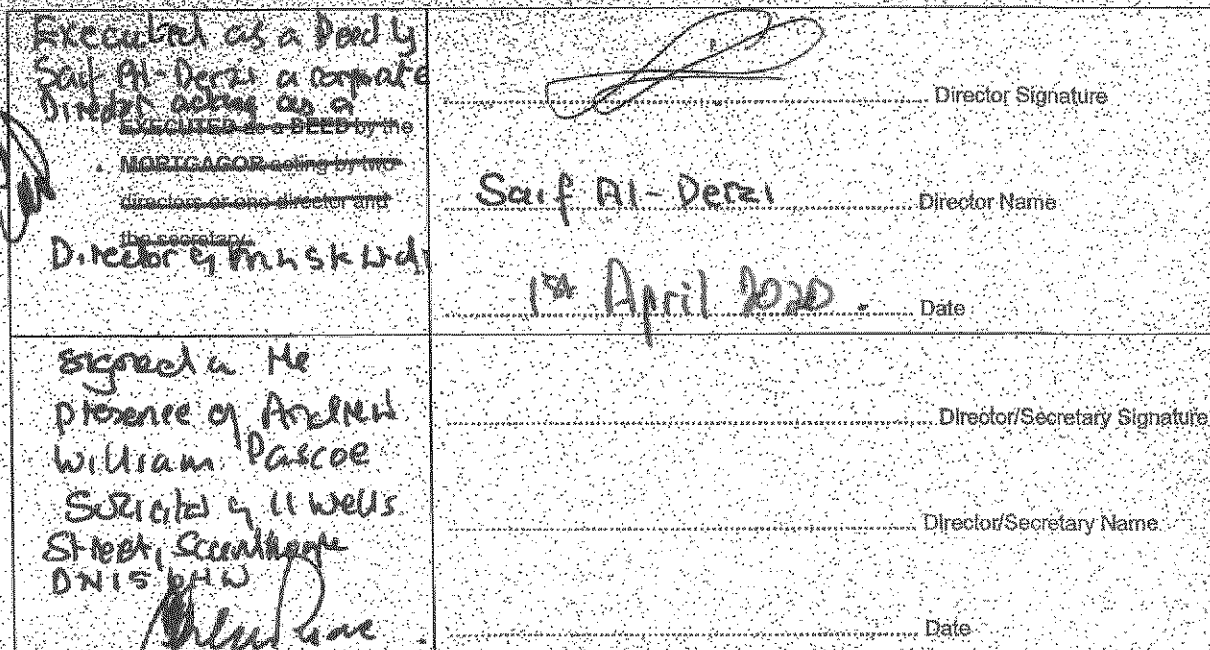 Executed as a Deed by
Saif Al-Derzi a corporate
Director acting as a
EXECUTED as a DEED by the
MORTGAGOR acting by two
directors or one director and
the secretary.
Director of Ltd
Director Signature
Saif Al-Derzi Director Name
1st April 2020. Date
Signed in the
presence of Andrew
William Pascoe
Solicitor of 11 Wells
Street, Scunthorpe
DN15 6HW
Director/Secretary Signature
Director/Secretary Name
Date